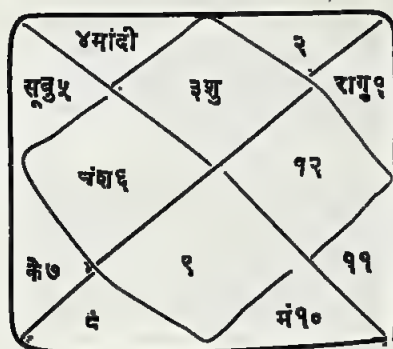 ४मांदी २
सूबु५ ३शु रागु१
चंश६ १२
के७ ९ ११
८ मं१०